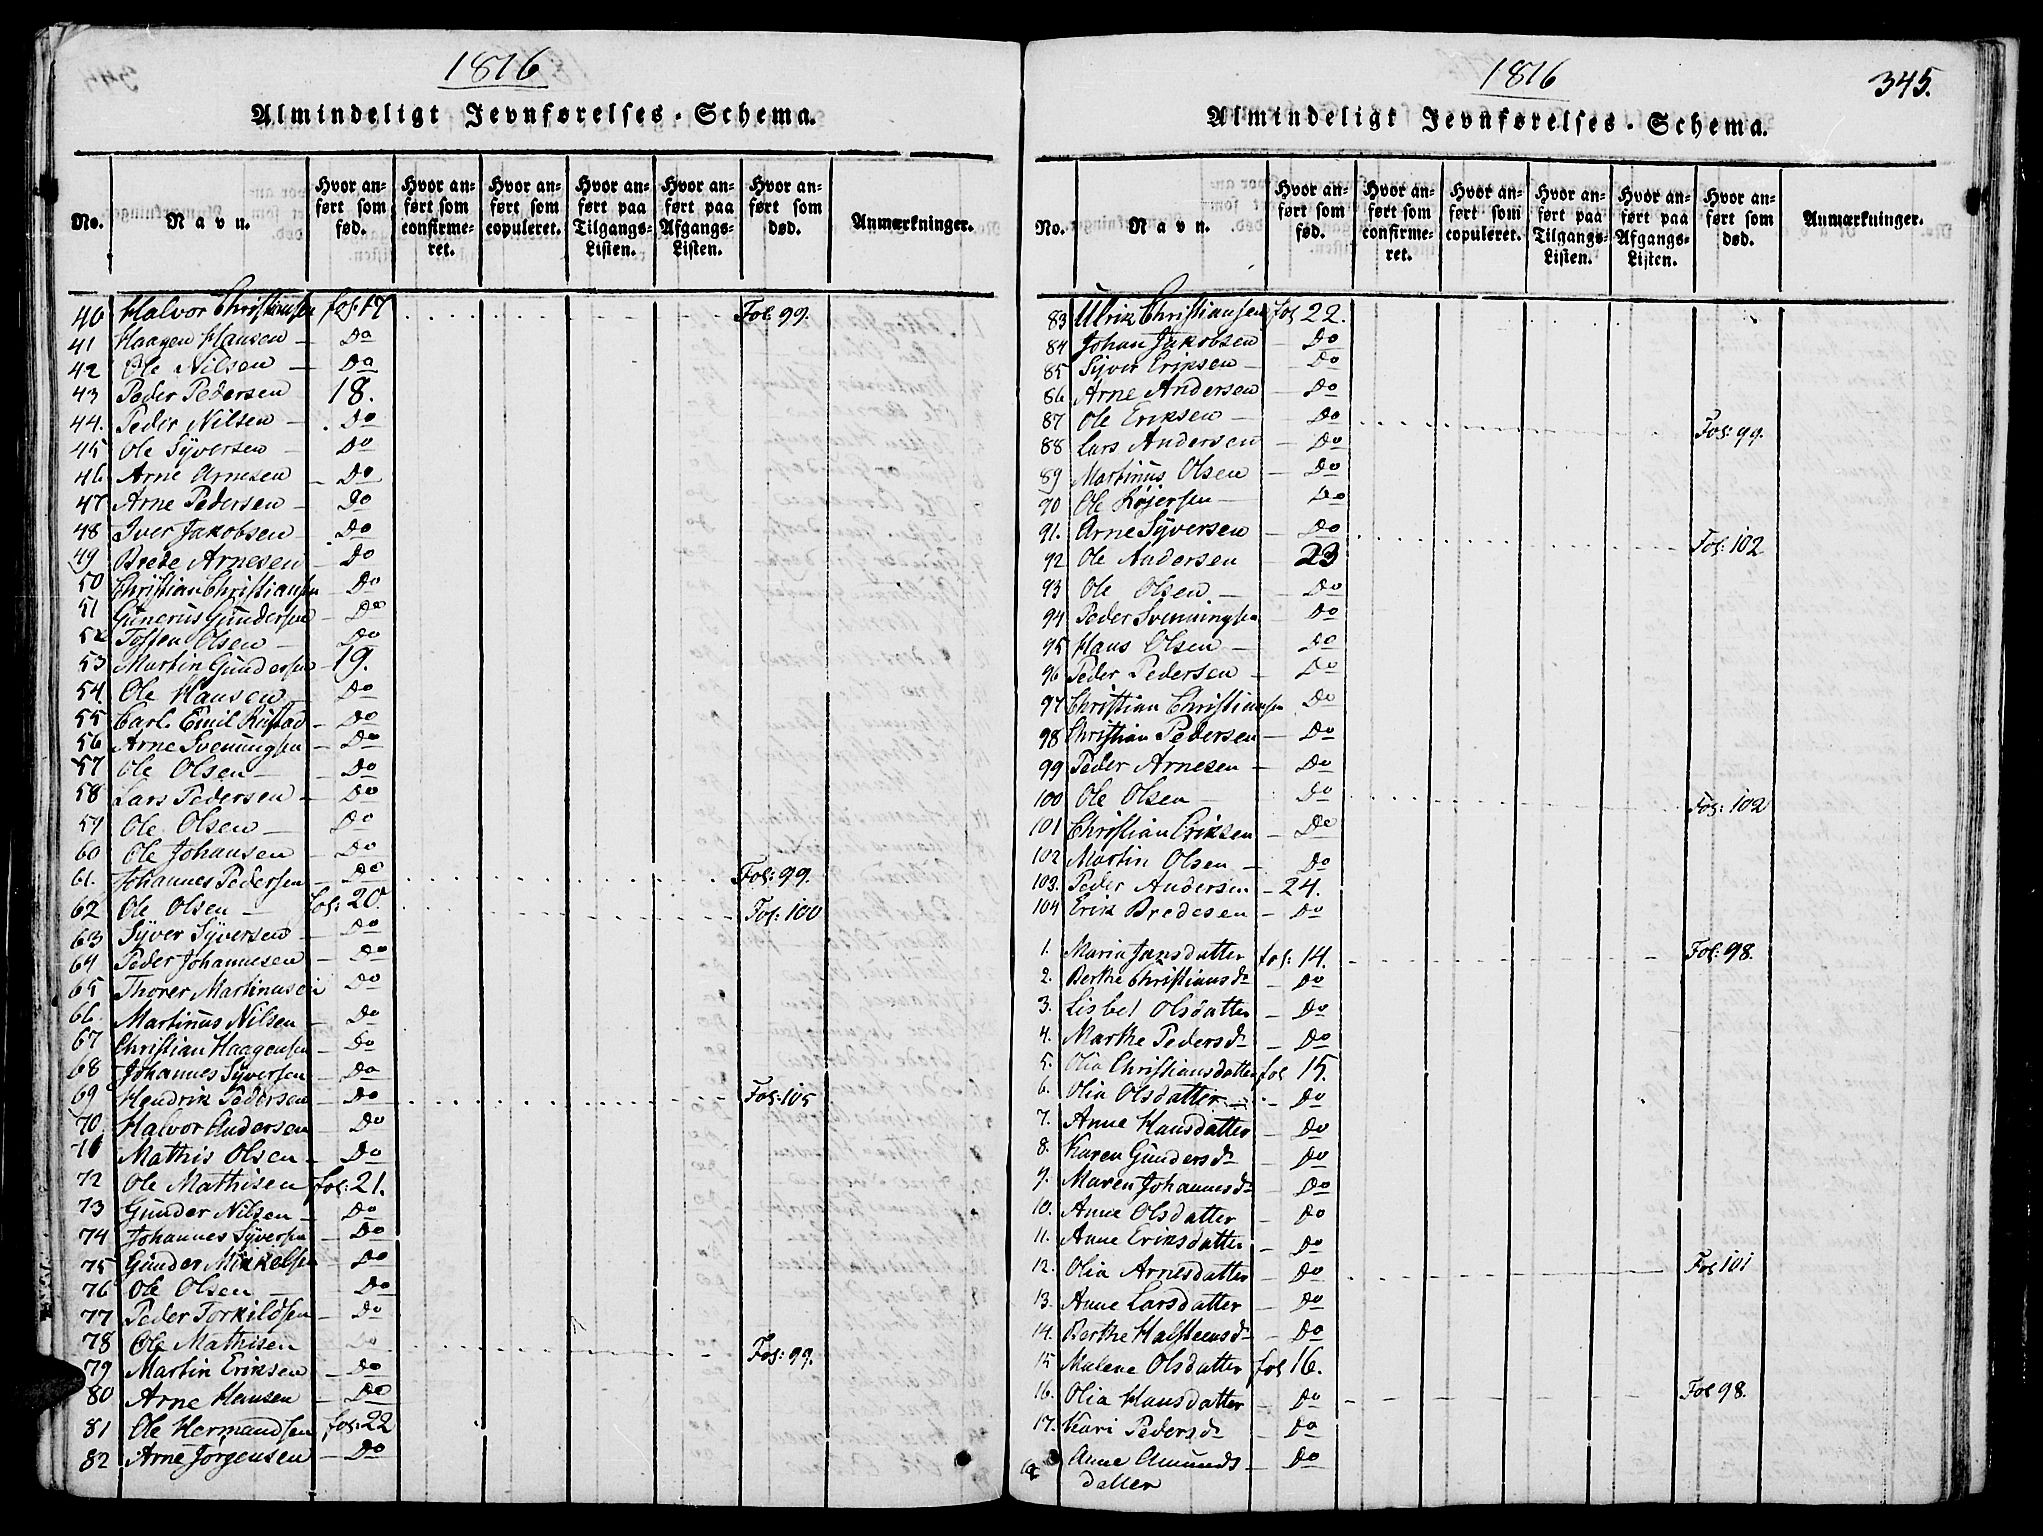 1816
Almindeligt Jevnførelses-Schema.
No.
Navn.
Hvor anført som fød.
Hvor anført som confirmeret.
Hvor anført som copuleret.
Hvor anført paa Tilgangs-Listen.
Hvor anført paa Afgangs-Listen.
Hvor anført som død.
Anmærkninger.
40 Halvor Christiansen fol: 17 Fol: 99.
41 Haagen Hansen – Do
42 Ole Nilsen – Do
43 Peder Pedersen 18.
44. Peder Nilsen – Do
45 Ole Syversen – Do
46 Arne Arnesen – Do
47 Arne Pedersen – Do
48 Iver Jakobsen – Do
49 Brede Arnesen – Do
50 Christian Christiansen – Do
51 Gunerus Gundersen – Do
52 Toffen Olsen – Do
53 Martin Gundersen – 19.
54. Ole Hansen – Do
55 Carl Emil – Do
56 Arne Svenningsen – Do
57 Ole Olsen – Do
58 Lars Pedersen – Do
59 Ole Olsen – Do
60 Ole Johansen – Do
61. Johannes Pedersen – Do Fol: 99.
62 Ole Olsen – fol: 20 Fol: 100
63 Syver Syversen – Do
64 Peder Johannesen – Do
65 Thorer Martinusen Do
66. Martinus Nilsen – Do
67 Christian Haagensen – Do
68 Johannes Syversen – Do
69 Hendrik Pedersen – Do Fol: 105
70. Halvor Andersen – Do
71 Mathis Olsen – Do
72 Ole Mathisen fol: 21.
73 Gunder Nilsen – Do
74 Johannes Syversen – Do
75 Gunder Mikkelsen Do
76 Ole Olsen – Do
77 Peder Torkildsen – Do
78 Ole Mathisen Do Fol: 99.
79 Martin Eriksen – Do
80 Arne Hansen – Do
81 Ole Hermandsen fol: 22
82 Arne Jørgensen – Do
1816
345.
Almindeligt Jevnførelses-Schema.
No.
Navn.
Hvor anført som fød.
Hvor anført som confirmeret.
Hvor anført som copuleret.
Hvor anført paa Tilgangs-Listen.
Hvor anført paa Afgangs-Listen.
Hvor anført som død.
Anmærkninger.
83 Ulrik Christiansen fol 22.
84 Johan Jakobsen – Do
85 Syver Eriksen – Do
86 Arne Andersen – Do
87 Ole Eriksen – Do Fol: 99.
88 Lars Andersen – Do
89 Martinus Olsen – Do
90 Ole – Do
91. Arne Syversen – Do Fol: 102
92 Ole Andersen – 23
93 Ole Olsen – Do
94 Peder Svenningsen Do
95 Hans Olsen – Do
96 Peder Pedersen – Do
97 Christian Christiansen Do
98 Christian Pedersen – Do
99 Peder Arnesen – Do
100 Ole Olsen – Do Fol: 102
101 Christian Eriksen – Do
102 Martin Olsen – Do
103. Peder Andersen – 24.
104 Erik Bredesen – Do
1. Maria Jansdatter fol: 14. Fol: 98.
2. Berthe Christiansdr – Do
3. Lisbet Olsdatter – Do
4. Marthe Pedersdr – Do
5. Olia Christiansdatter fol 15.
6. Olia Olsdatter – Do
7. Anne Hansdatter – Do
8. Karen Gundersdr – Do
9. Maren Johannesdr – Do
10. Anne Olsdatter – Do
11. Anne Eriksdatter – Do
12. Olia Arnesdatter – Do Fol 101
13. Anne Larsdatter – Do
14. Berthe Halsteensdr – Do
15 Malene Olsdatter fol 16.
16. Olia Hansdatter – Do Fol 98.
17. Kari Pedersdr – Do
Anne Amundsdatter – Do